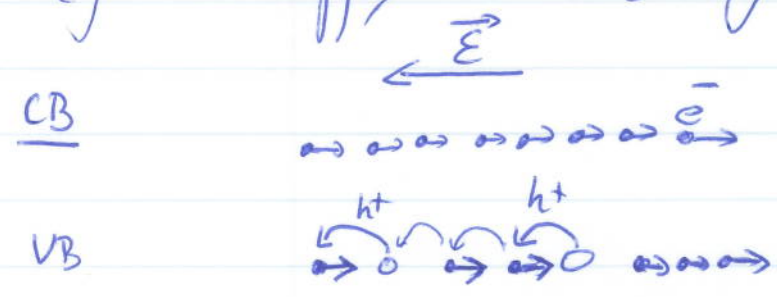 ℰ
CB e⁻
h⁺ h⁺
VB